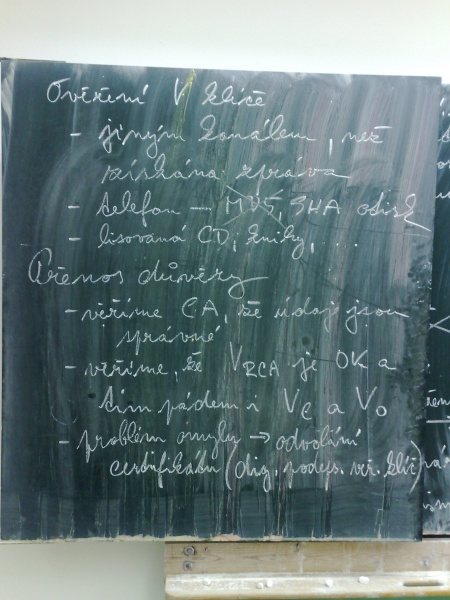 Ověření V klíče
- jiným kanálem, než
získána zpráva
- telefon – MD5, SHA otisk
- lisovaná CD, knihy, ...
Přenos důvěry
- věříme CA, že údaje jsou
správné
- věříme, že V_RCA je OK a
tím pádem i V_C a V_O
- problém omyly → odvolání
certifikátu (dig. podeps. veř. klíč)